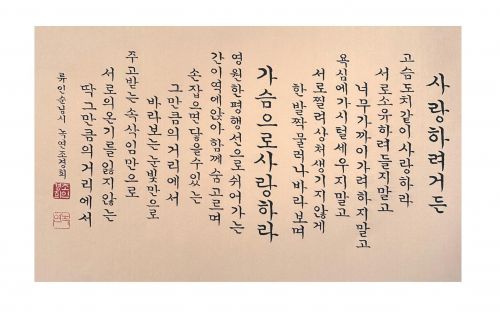 사랑하려거든
고슴도치같이 사랑하라
서로소유하려들지말고
너무가까이가려하지말고
욕심에가시털세우지말고
서로찔려상처생기지않게
한발짝물러나바라보며
가슴으로사랑하라
영원한평행선으로쉬어가는
간이역에앉아함께숨고르며
손잡으면닿을수있는
그만큼의거리에서
바라보는눈빛만으로
주고받는속삭임만으로
서로의온기를잃지않는
딱그만큼의거리에서
류인순님시 녹연조정희